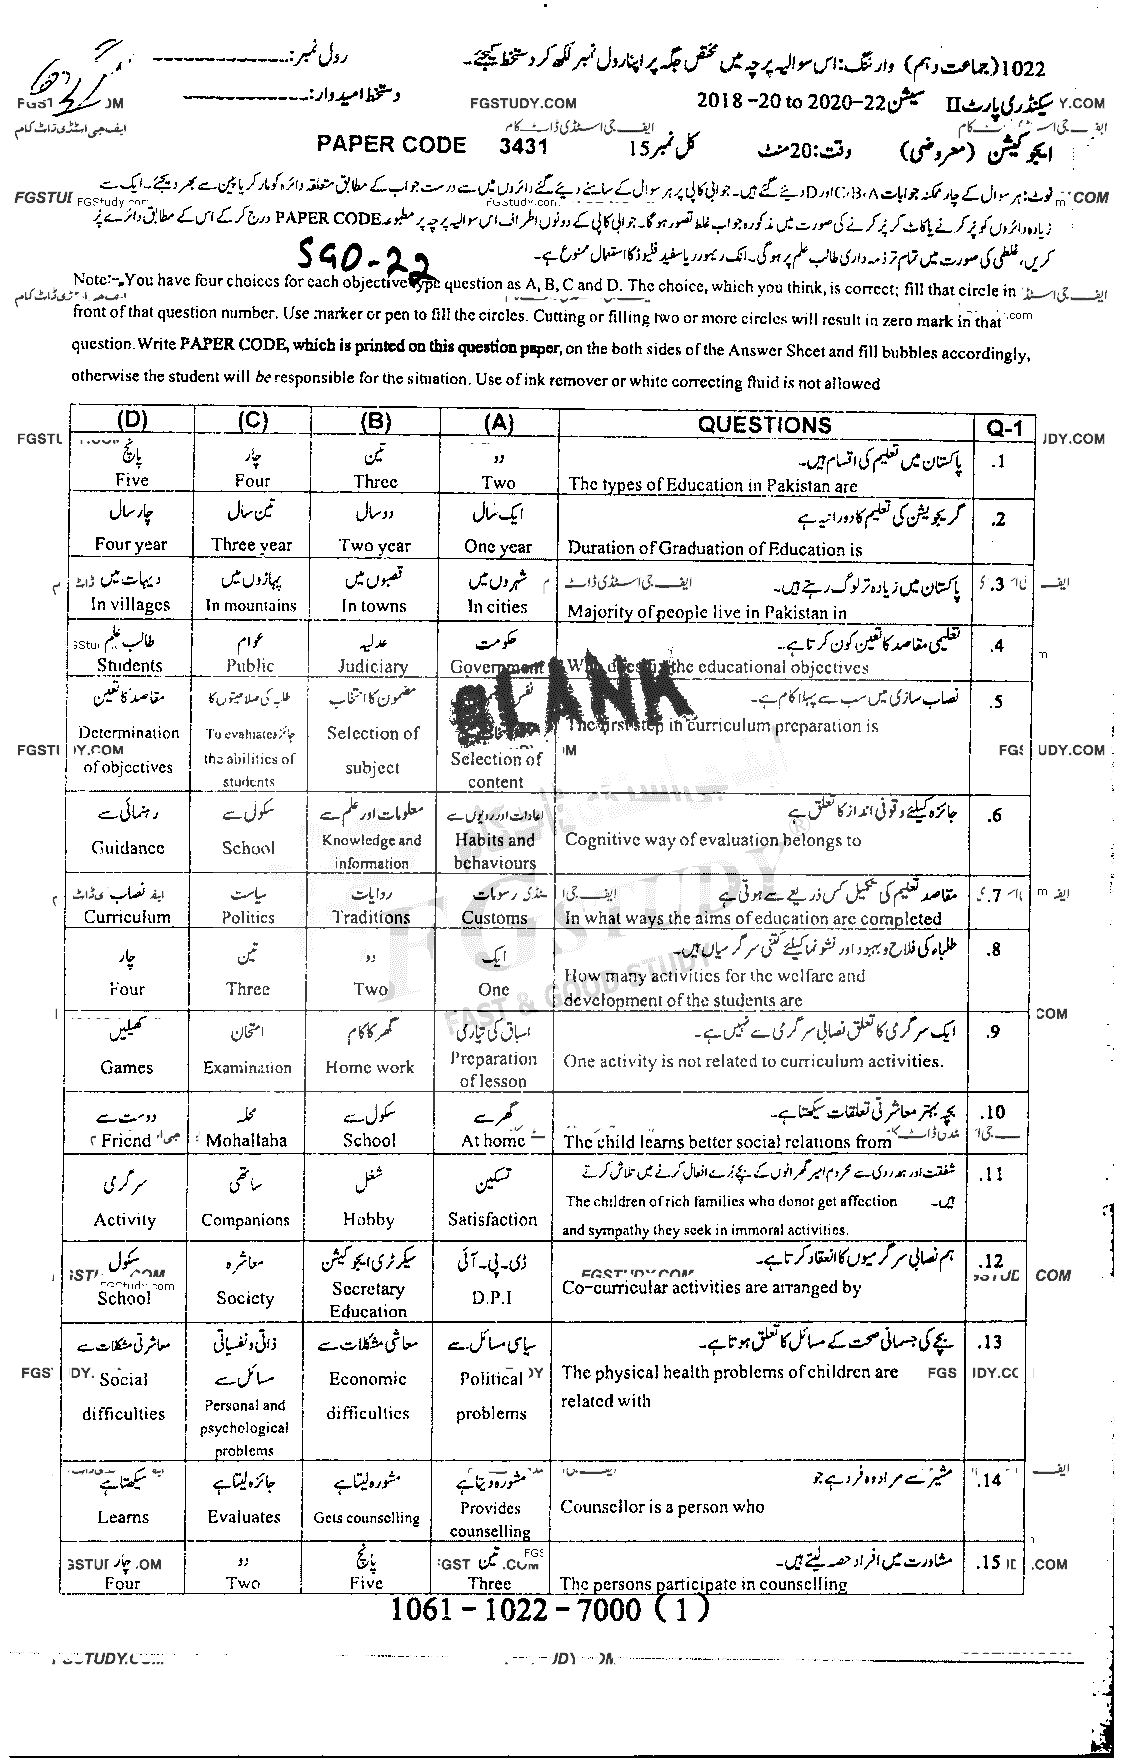 1022 (جماعت دہم) وارننگ: اس سوالیہ پرچہ میں مختص جگہ پر اپنا رول نمبر لکھ کر دستخط کیجئے۔ رول نمبر:
سیکنڈری پارٹ II سیشن 2018-20 to 2020-22 FGSTUDY.COM دستخط امیدوار:
ایجوکیشن (معروضی) وقت: 20 منٹ کل نمبر 15 PAPER CODE 3431
نوٹ: ہر سوال کے چار ممکنہ جوابات A، B، C اور D دیئے گئے ہیں۔ جوابی کاپی پر ہر سوال کے سامنے دیئے گئے دائروں میں سے درست جواب کے مطابق متعلقہ دائرہ کو مارکر یا پین سے بھر دیجئے۔ ایک سے
زیادہ دائروں کو پُر کرنے یا کاٹ کر پُر کرنے کی صورت میں مذکورہ جواب غلط تصور ہوگا۔ جوابی کاپی کے دونوں اطراف اس سوالیہ پرچہ پر مطبوعہ PAPER CODE درج کر کے اس کے مطابق دائرے پُر
کریں، غلطی کی صورت میں تمام تر ذمہ داری طالب علم پر ہوگی۔ انک ریموور یا سفید فلیوڈ کا استعمال ممنوع ہے۔
SGD-22
Note:- You have four choices for each objective type question as A, B, C and D. The choice, which you think, is correct; fill that circle in
front of that question number. Use marker or pen to fill the circles. Cutting or filling two or more circles will result in zero mark in that
question. Write PAPER CODE, which is printed on this question paper, on the both sides of the Answer Sheet and fill bubbles accordingly,
otherwise the student will be responsible for the situation. Use of ink remover or white correcting fluid is not allowed
(D) (C) (B) (A) QUESTIONS Q-1
پانچ چار تین دو پاکستان میں تعلیم کی اقسام ہیں۔ .1
Five Four Three Two The types of Education in Pakistan are
چار سال تین سال دو سال ایک سال گریجویشن کی تعلیم کا دورانیہ ہے .2
Four year Three year Two year One year Duration of Graduation of Education is
دیہات میں پہاڑوں میں قصبوں میں شہروں میں پاکستان میں زیادہ تر لوگ رہتے ہیں۔ .3
In villages In mountains In towns In cities Majority of people live in Pakistan in
طالب علم عوام عدلیہ حکومت تعلیمی مقاصد کا تعین کون کرتا ہے۔ .4
Students Public Judiciary Government the educational objectives
BLANK
مقاصد کا تعین طلبہ کی صلاحیتوں کا مضمون کا انتخاب نصاب سازی میں سب سے پہلا کام ہے۔ .5
Determination To evaluate جائزہ Selection of The first step in curriculum preparation is
of objectives the abilities of subject Selection of
students content
رہنمائی سے سکول سے معلومات اور علم سے عادات اور رویوں سے جائزہ کیلئے وقوفی انداز کا تعلق ہے .6
Guidance School Knowledge and Habits and Cognitive way of evaluation belongs to
information behaviours
نصاب سیاست روایات رسومات مقاصد تعلیم کی تکمیل کس ذریعے سے ہوتی ہے .7
Curriculum Politics Traditions Customs In what ways the aims of education are completed
چار تین دو ایک طلباء کی فلاح و بہبود اور نشوونما کیلئے کتنی سرگرمیاں ہیں۔ .8
Four Three Two One How many activities for the welfare and
development of the students are
کھیلیں امتحان گھر کا کام اسباق کی تیاری ایک سرگرمی کا تعلق نصابی سرگرمی سے نہیں ہے۔ .9
Games Examination Home work Preparation One activity is not related to curriculum activities.
of lesson
دوست سے محلہ سکول سے گھر سے بچہ بہتر معاشرتی تعلقات سیکھتا ہے۔ .10
Friend Mohallaha School At home The child learns better social relations from
سرگرمی ساتھی شغل تسکین شفقت اور ہمدردی سے محروم امیر گھرانوں کے بچے برے افعال کرنے میں تلاش کرتے .11
ہیں۔ The children of rich families who donot get affection
Activity Companions Hobby Satisfaction and sympathy they seek in immoral activities.
سکول معاشرہ سیکرٹری ایجوکیشن ڈی۔پی۔آئی ہم نصابی سرگرمیوں کا انعقاد کرتا ہے۔ .12
School Society Secretary D.P.I Co-curricular activities are arranged by
Education
معاشرتی مشکلات سے ذاتی و نفسیاتی معاشی مشکلات سے سیاسی مسائل سے بچے کی جسمانی صحت کے مسائل کا تعلق ہوتا ہے۔ .13
Social مسائل سے Economic Political The physical health problems of children are
difficulties Personal and difficulties problems related with
psychological
problems
سیکھتا ہے جائزہ لیتا ہے مشورہ لیتا ہے مشورہ دیتا ہے مشیر سے مراد وہ فرد ہے جو .14
Learns Evaluates Gets counselling Provides Counsellor is a person who
counselling
چار دو پانچ تین مشاورت میں افراد حصہ لیتے ہیں۔ .15
Four Two Five Three The persons participate in counselling
1061 - 1022 - 7000 (1)